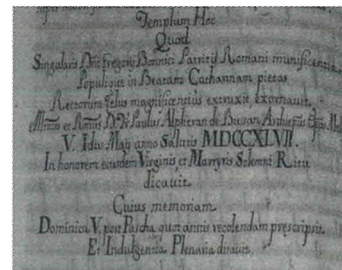 Templum Hoc
Quod
Singularis Dni Gregorij Bonnici Patritij Romani munificentia,
Populiq in Beatam Catharinam pietas
Rectorum Zelus magnificentius extruxit exornauit.
et D. Paulus Alpheran de Bussan
V. Idus Maij anno Salutis MDCCXLVII.
In honorem eiusdem Virginis et Martyris Solemni Ritu
dicauit.
Cuius memoriam
Dominica V. post Pascha quotannis recolendam prescripsit.
Et Indulgentia Plenaria ditauit.